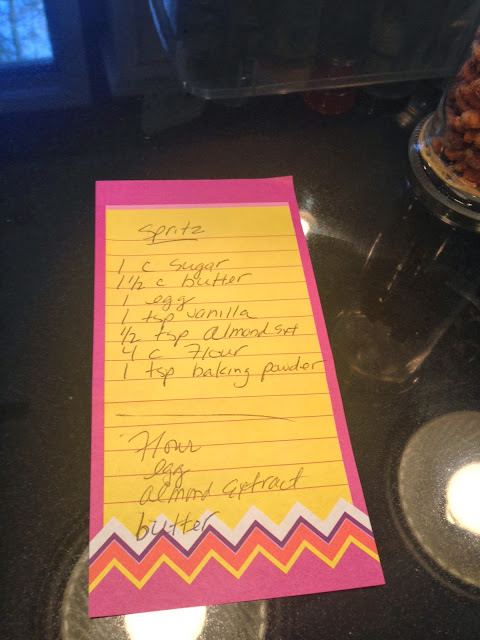 Spritz
1 c sugar
1 1/2 c butter
1 egg
1 tsp vanilla
1/2 tsp almond ext
4 c Flour
1 tsp baking powder
Flour
egg
almond extract
butter